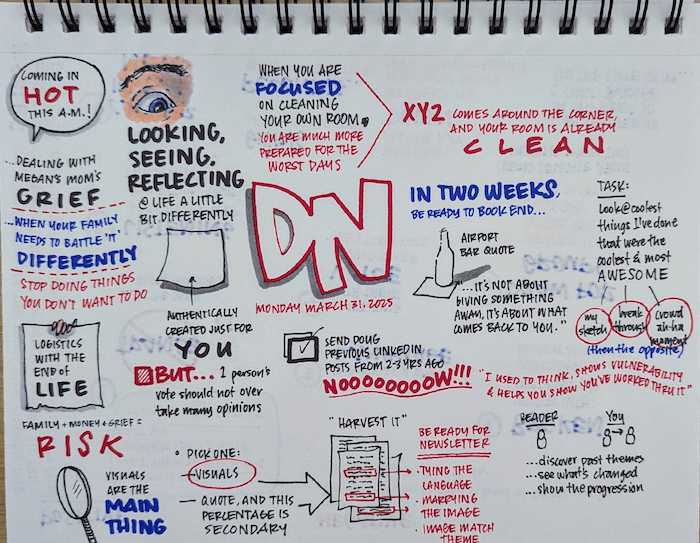 COMING IN
HOT
THIS A.M.!
...DEALING WITH
MEGAN'S MOM'S
GRIEF
...WHEN YOUR FAMILY
NEEDS TO BATTLE 'IT'
DIFFERENTLY
STOP DOING THINGS
YOU DON'T WANT TO DO
LOGISTICS
WITH THE
END OF
LIFE
FAMILY + MONEY + GRIEF =
RISK
VISUALS
ARE THE
MAIN
THING
LOOKING,
SEEING,
REFLECTING
@ LIFE A LITTLE
BIT DIFFERENTLY
AUTHENTICALLY
CREATED JUST FOR
YOU
BUT... 1 person's
vote should not over
take many opinions
• PICK ONE:
— VISUALS
— QUOTE, AND THIS
PERCENTAGE IS
SECONDARY
WHEN YOU ARE
FOCUSED
ON CLEANING
YOUR OWN ROOM,
YOU ARE MUCH MORE
PREPARED FOR THE
WORST DAYS
XYZ COMES AROUND THE CORNER,
AND YOUR ROOM IS ALREADY
CLEAN
DN
MONDAY MARCH 31, 2025
IN TWO WEEKS,
BE READY TO BOOK END...
AIRPORT
BAR QUOTE
"...IT'S NOT ABOUT
GIVING SOMETHING
AWAY, IT'S ABOUT WHAT
COMES BACK TO YOU."
TASK:
Look@coolest
things I've done
that were the
coolest & most
AWESOME
my
sketch
break
through
crowd
ah-ha
moment
(then the opposite)
SEND DOUG
PREVIOUS LINKEDIN
POSTS FROM 2-3 YRS AGO
NOOOOOOOW!!!
"I USED TO THINK, SHOWS VULNERABILITY
& HELPS YOU SHOW YOU'VE WORKED THRU IT"
"HARVEST IT"
BE READY FOR
NEWSLETTER
• TYING THE
LANGUAGE
• MARRYING
THE IMAGE
• IMAGE MATCH
THEME
READER
YOU
...discover past themes
...see what's changed
...show the progression